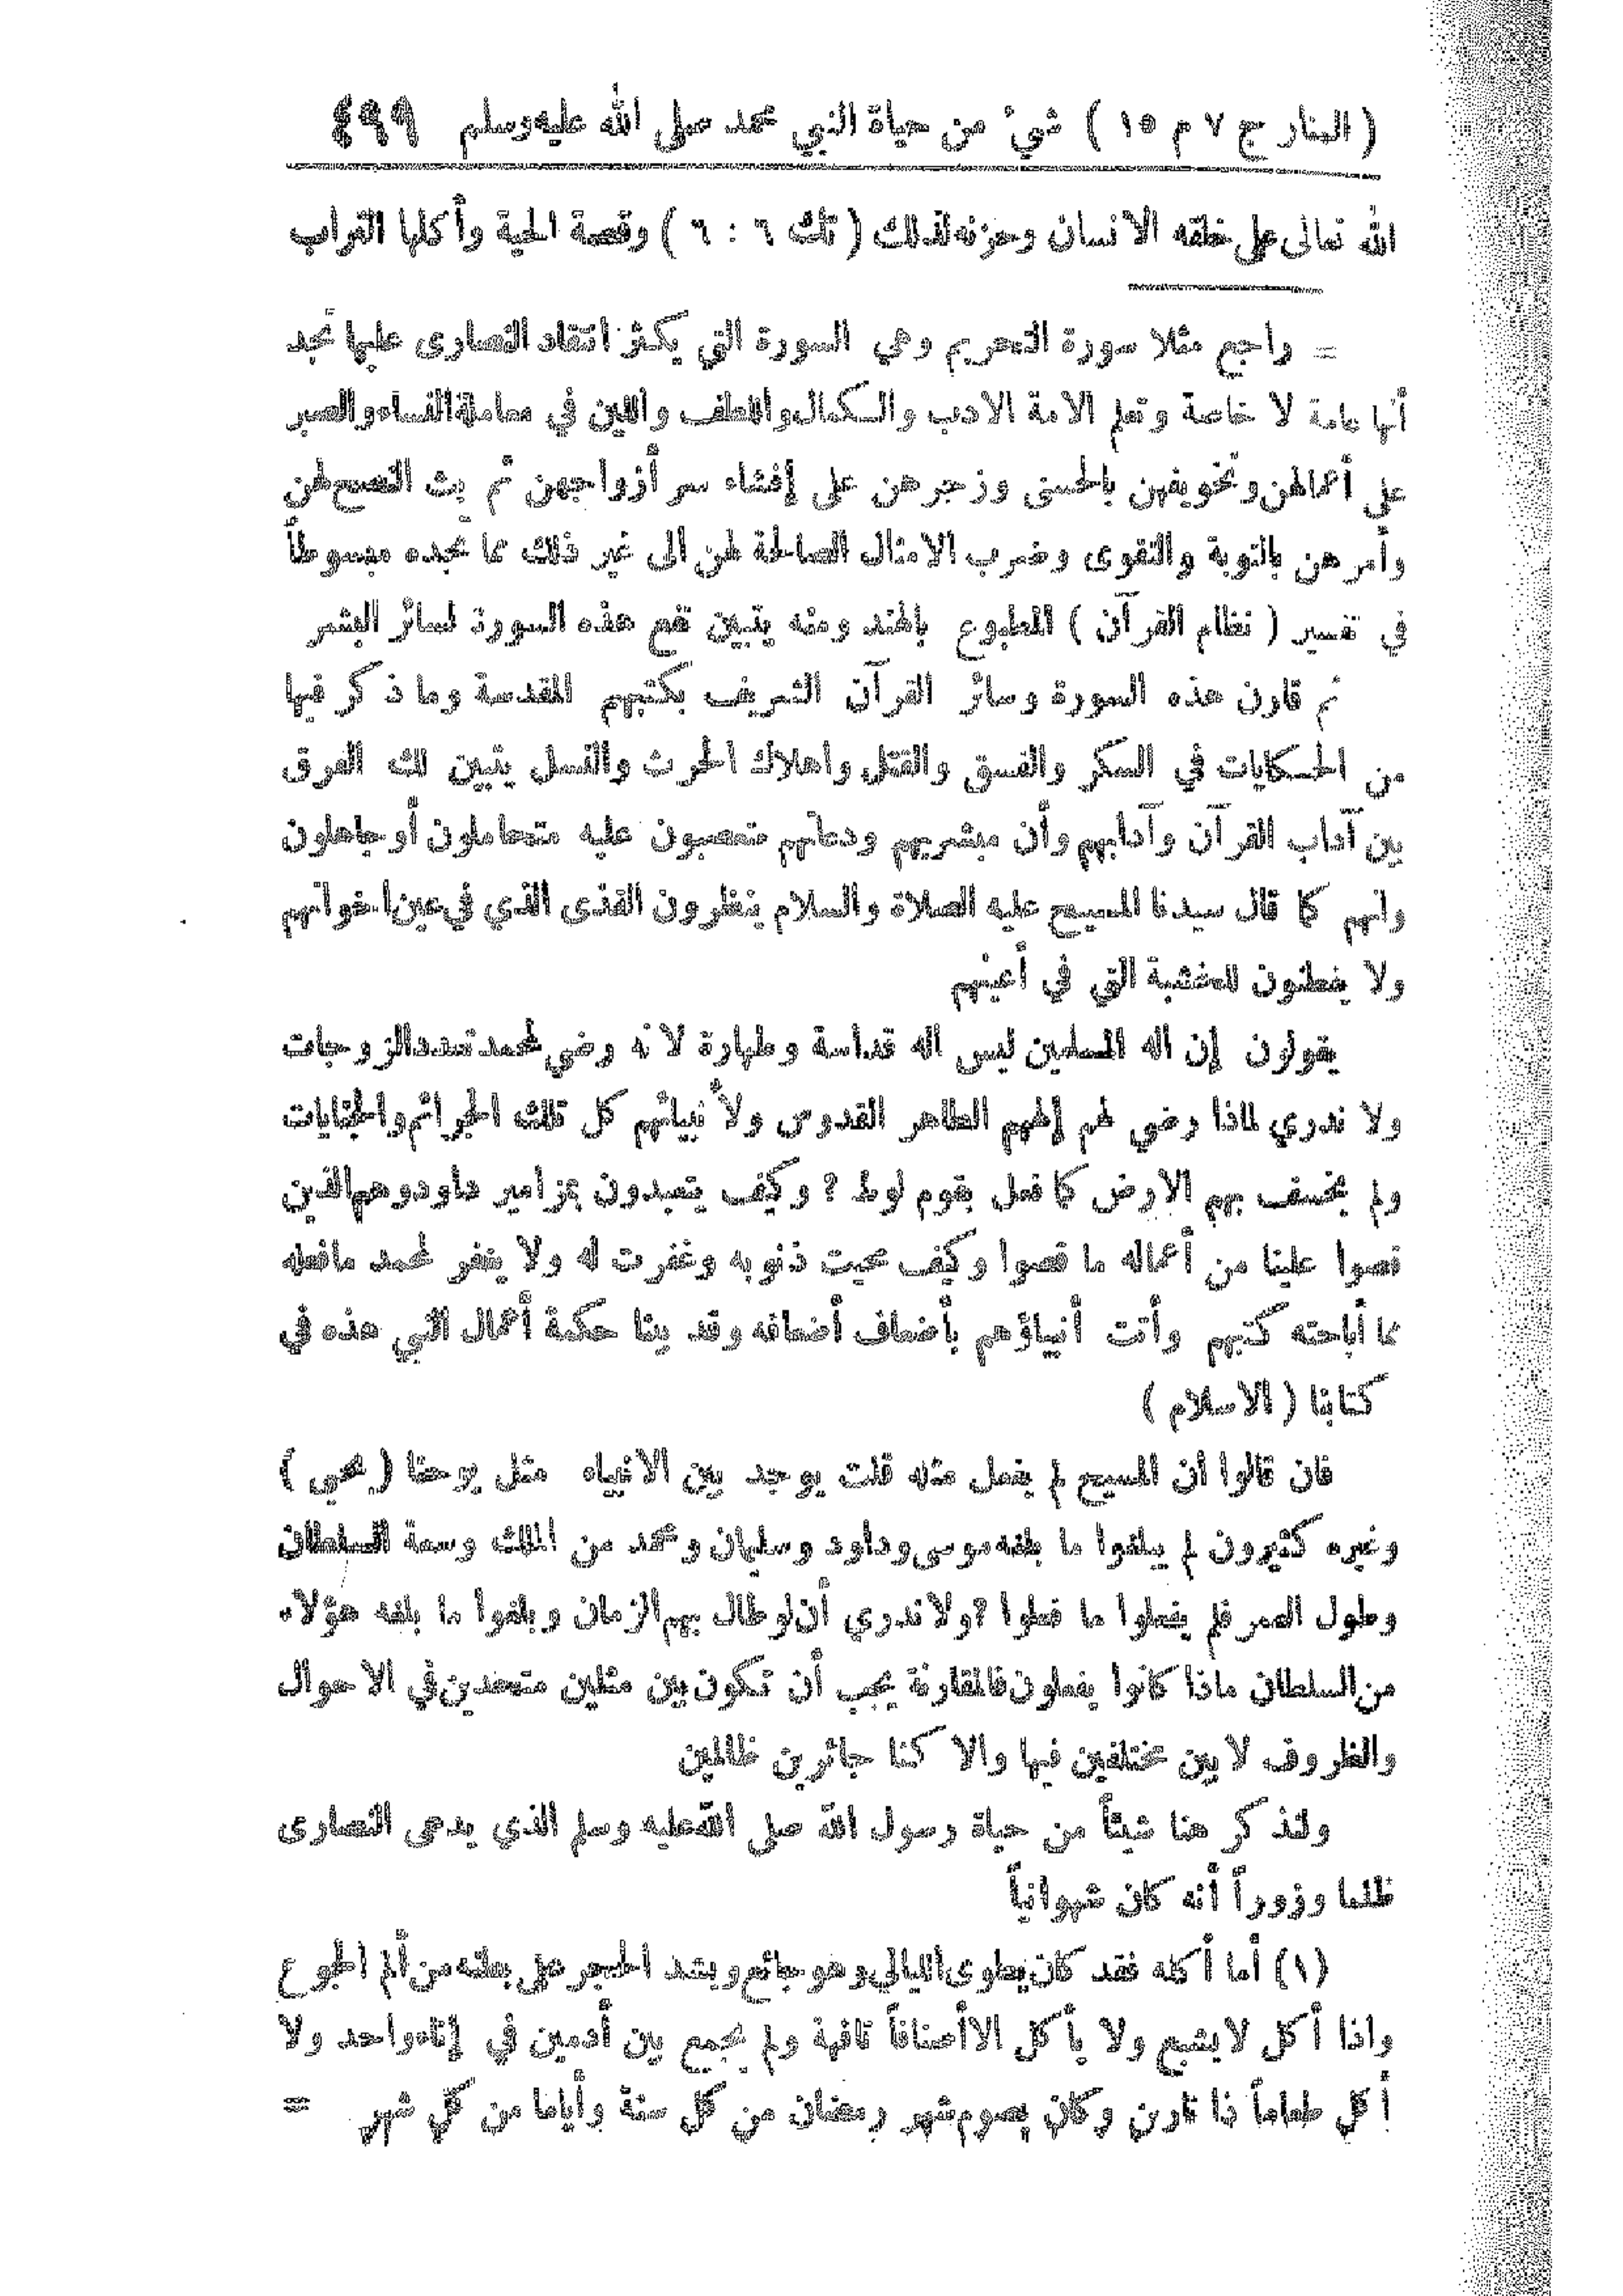 (المنار ج ٧ م ١٥) شيء من حياة النبي محمد صلى الله عليه وسلم ٤٩٩
الله تعالى على خلقه الانسان وحزنه لذلك (تك ٦ : ٦) وقصة الحية وأكلها التراب
= راجع مثلا سورة التحريم وهي السورة التي يكثر انتقاد النصارى عليها تجد
أنها عامة لا خاصة وتعلم الامة الادب والكمال واللطف واللين في معاملة النساء والصبر
على أعمالهن وتخويفهن بالحسنى وزجرهن على إفشاء سر أزواجهن ثم بث النصح لهن
وأمرهن بالتوبة والتقوى وضرب الامثال الصالحة لهن الى غير ذلك مما تجده مبسوطاً
في تفسير (نظام القرآن) المطبوع بالهند ومنه يتبين نفع هذه السورة لسائر البشر
ثم قارن هذه السورة وسائر القرآن الشريف بكتبهم المقدسة وما ذكر فيها
من الحكايات في السكر والفسق والقتل واهلاك الحرث والنسل يتبين لك الفرق
بين آداب القرآن وآدابهم وأن مبشريهم ودعاتهم متعصبون عليه متحاملون أو جاهلون
وانهم كما قال سيدنا المسيح عليه الصلاة والسلام ينظرون القذى الذي في عين اخوانهم
ولا يفطنون للخشبة التي في أعينهم
يقولون إن اله المسلمين ليس اله قداسة وطهارة لانه رضي لمحمد تعدد الزوجات
ولا ندري لماذا رضي لهم إلههم الطاهر القدوس ولأنبيائهم كل تلك الجرائم والجنايات
ولم يخسف بهم الارض كما فعل بقوم لوط ? وكيف يتعبدون بمزامير داود وهم الذين
قصوا علينا من أعماله ما قصوا وكيف محيت ذنوبه وغفرت له ولا يغفر لمحمد مافعله
مما أباحته كتبهم وأتت أنبياؤهم بأضعاف أضعافه وقد بينا حكمة أعمال النبي هذه في
كتابنا (الاسلام)
فان قالوا أن المسيح لم يفعل مثله قلت يوجد بين الانبياء مثل يوحنا (يحيى)
وغيره كثيرون لم يبلغوا ما بلغه موسى وداود وسليمان ومحمد من الملك وسعة السلطان
وطول العمر فلم يفعلوا ما فعلوا ? ولا ندري أن لو طال بهم الزمان وبلغوا ما بلغه هؤلاء
من السلطان ماذا كانوا يفعلون فالمقارنة يجب أن تكون بين مثلين متحدين في الاحوال
والظروف لا بين مختلفين فيها والا كنا جائرين ظالمين
ولنذكر هنا شيئاً من حياة رسول الله صلى الله عليه وسلم الذي يدعي النصارى
ظلما وزوراً أنه كان شهوانياً
(١) أما أكله فقد كان يطوى الليالي وهو جائع ويشد الحجر على بطنه من ألم الجوع
واذا أكل لا يشبع ولا يأكل الا أصنافاً تافهة ولم يجمع بين أدمين في إناء واحد ولا
أكل طعاماً ذا نارين وكان يصوم شهر رمضان من كل سنة وأياما من كل شهر =